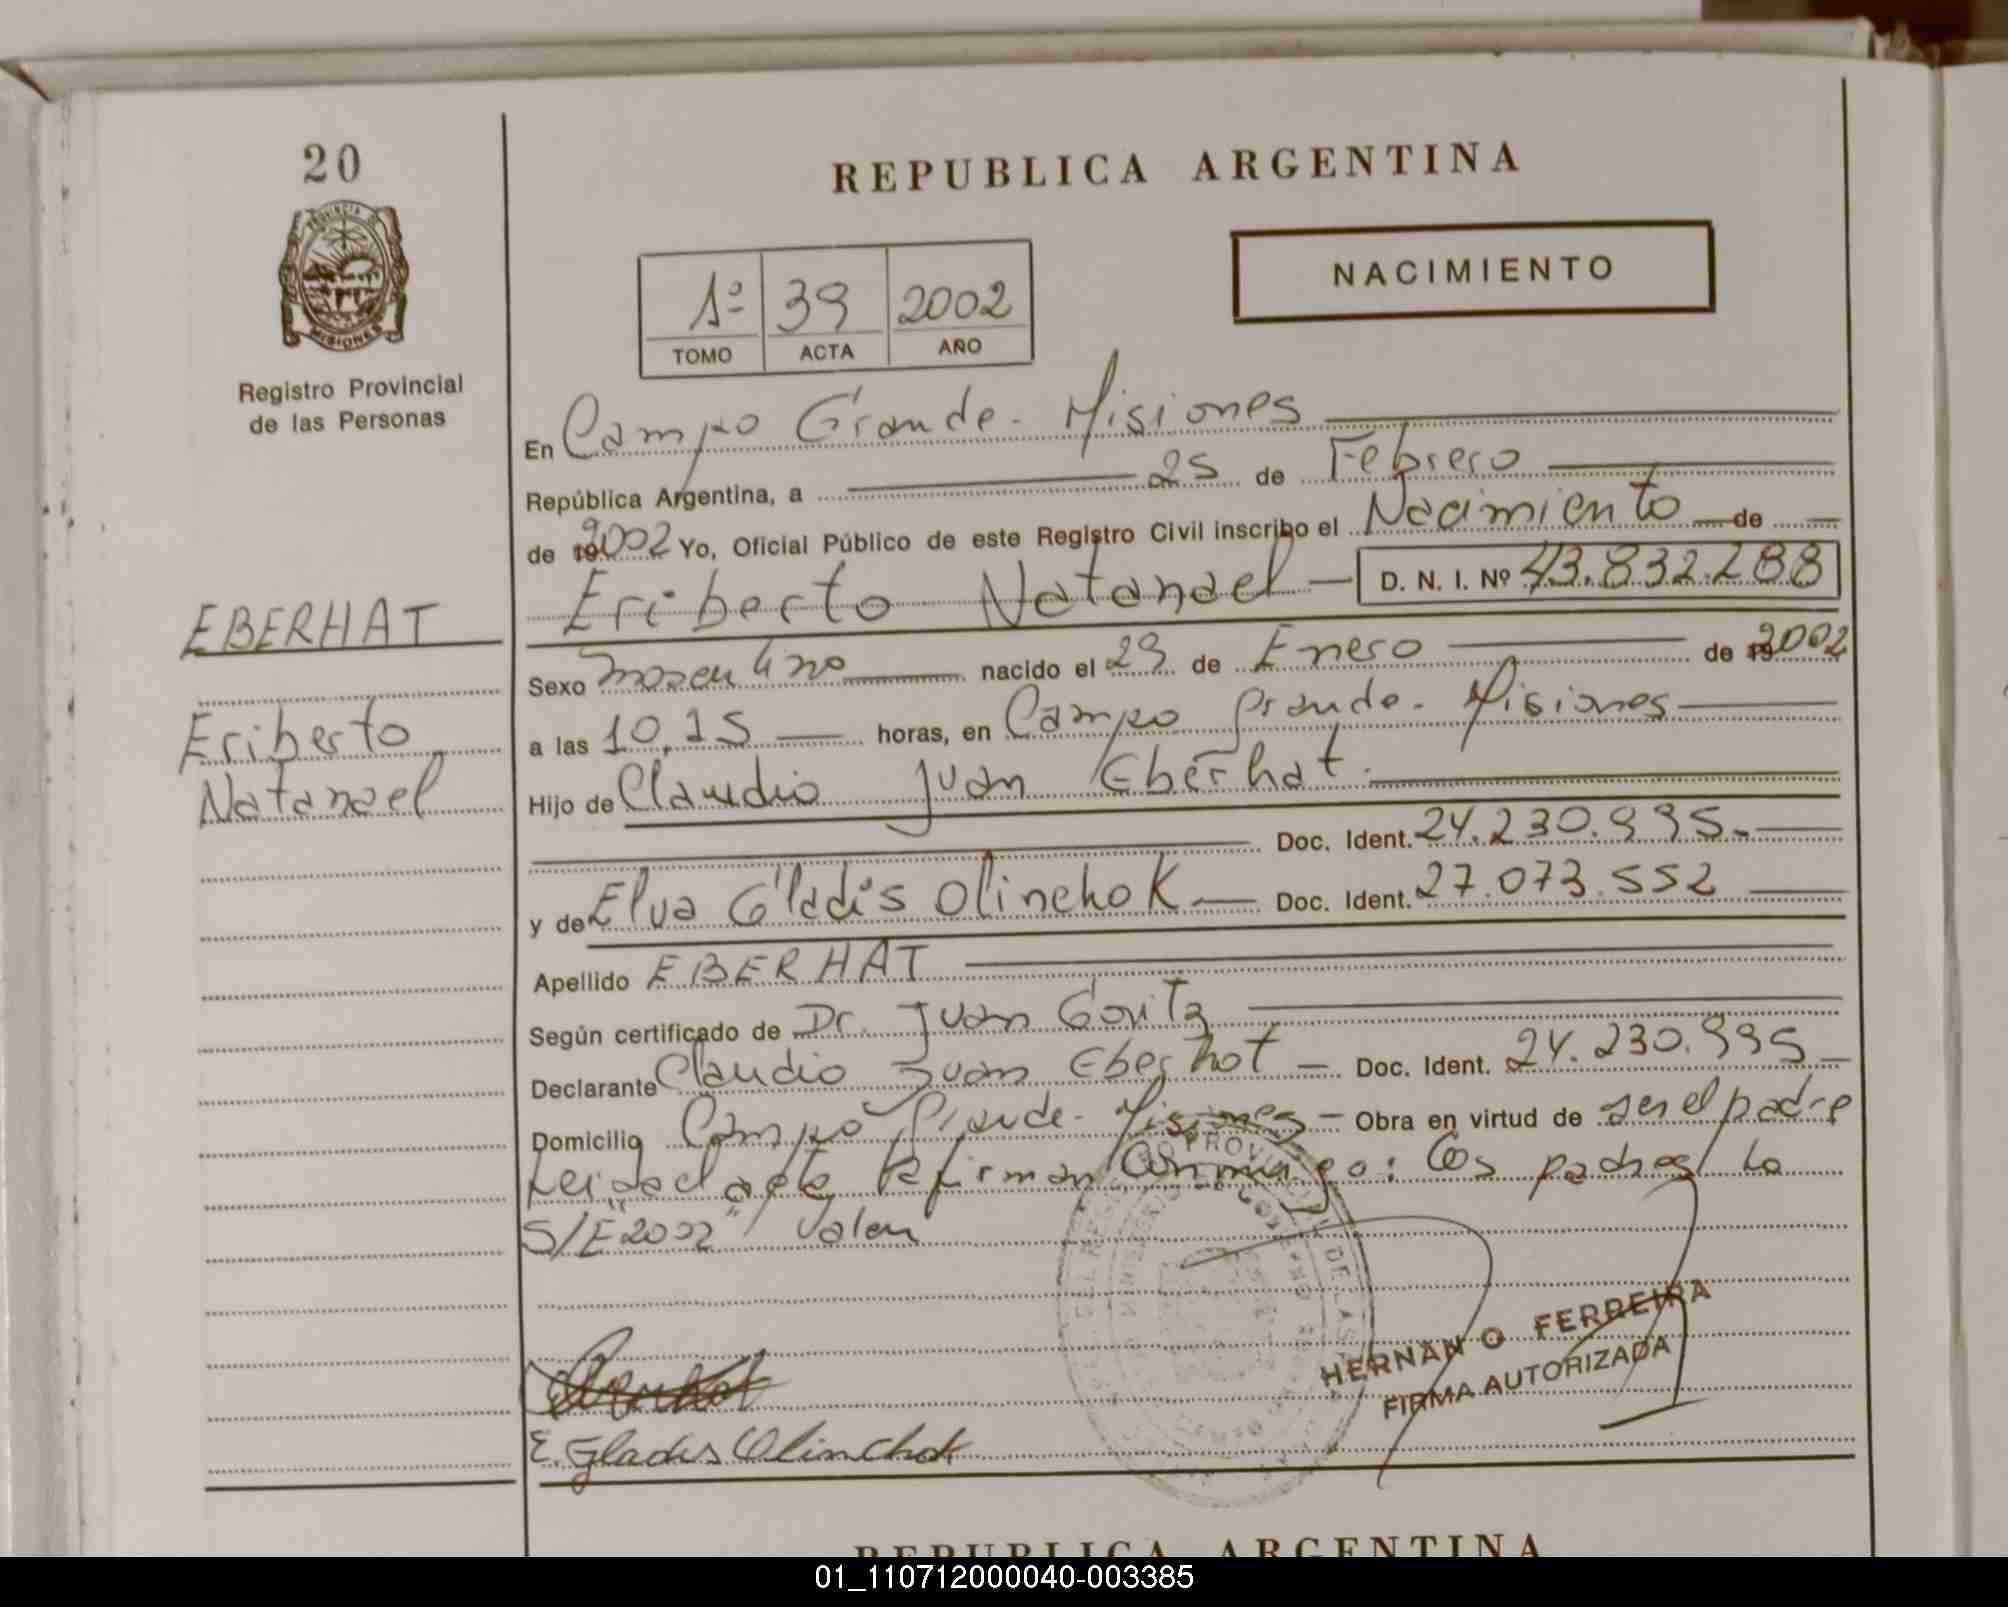 20
REPUBLICA ARGENTINA
NACIMIENTO
1º 39 2002
TOMO ACTA AÑO
Registro Provincial
de las Personas
En Campo Grande - Misiones
República Argentina, a 25 de Febrero
de 2002 Yo, Oficial Público de este Registro Civil inscribo el Nacimiento de
Eriberto Natanael D. N. I. Nº 43.832.288
EBERHAT
Eriberto
Natanael
Sexo masculino nacido el 29 de Enero de 2002
a las 10,15 horas, en Campo Grande - Misiones
Hijo de Claudio Juan Eberhat.
Doc. Ident. 24.230.995.-
y de Elva Gladis Olinchok Doc. Ident. 27.073.552
Apellido EBERHAT
Según certificado de Dr. Juan Goritz
Declarante Claudio Juan Eberhat Doc. Ident. 24.230.995
Domicilio Campo Grande - Misiones Obra en virtud de ser el padre
Leida el acta la firman conmigo: Los padres/ Lo
S/E "2002" Valen
HERNAN O FERREIRA
FIRMA AUTORIZADA
E. Gladis Olinchok
REPUBLICA ARGENTINA
01_110712000040-003385